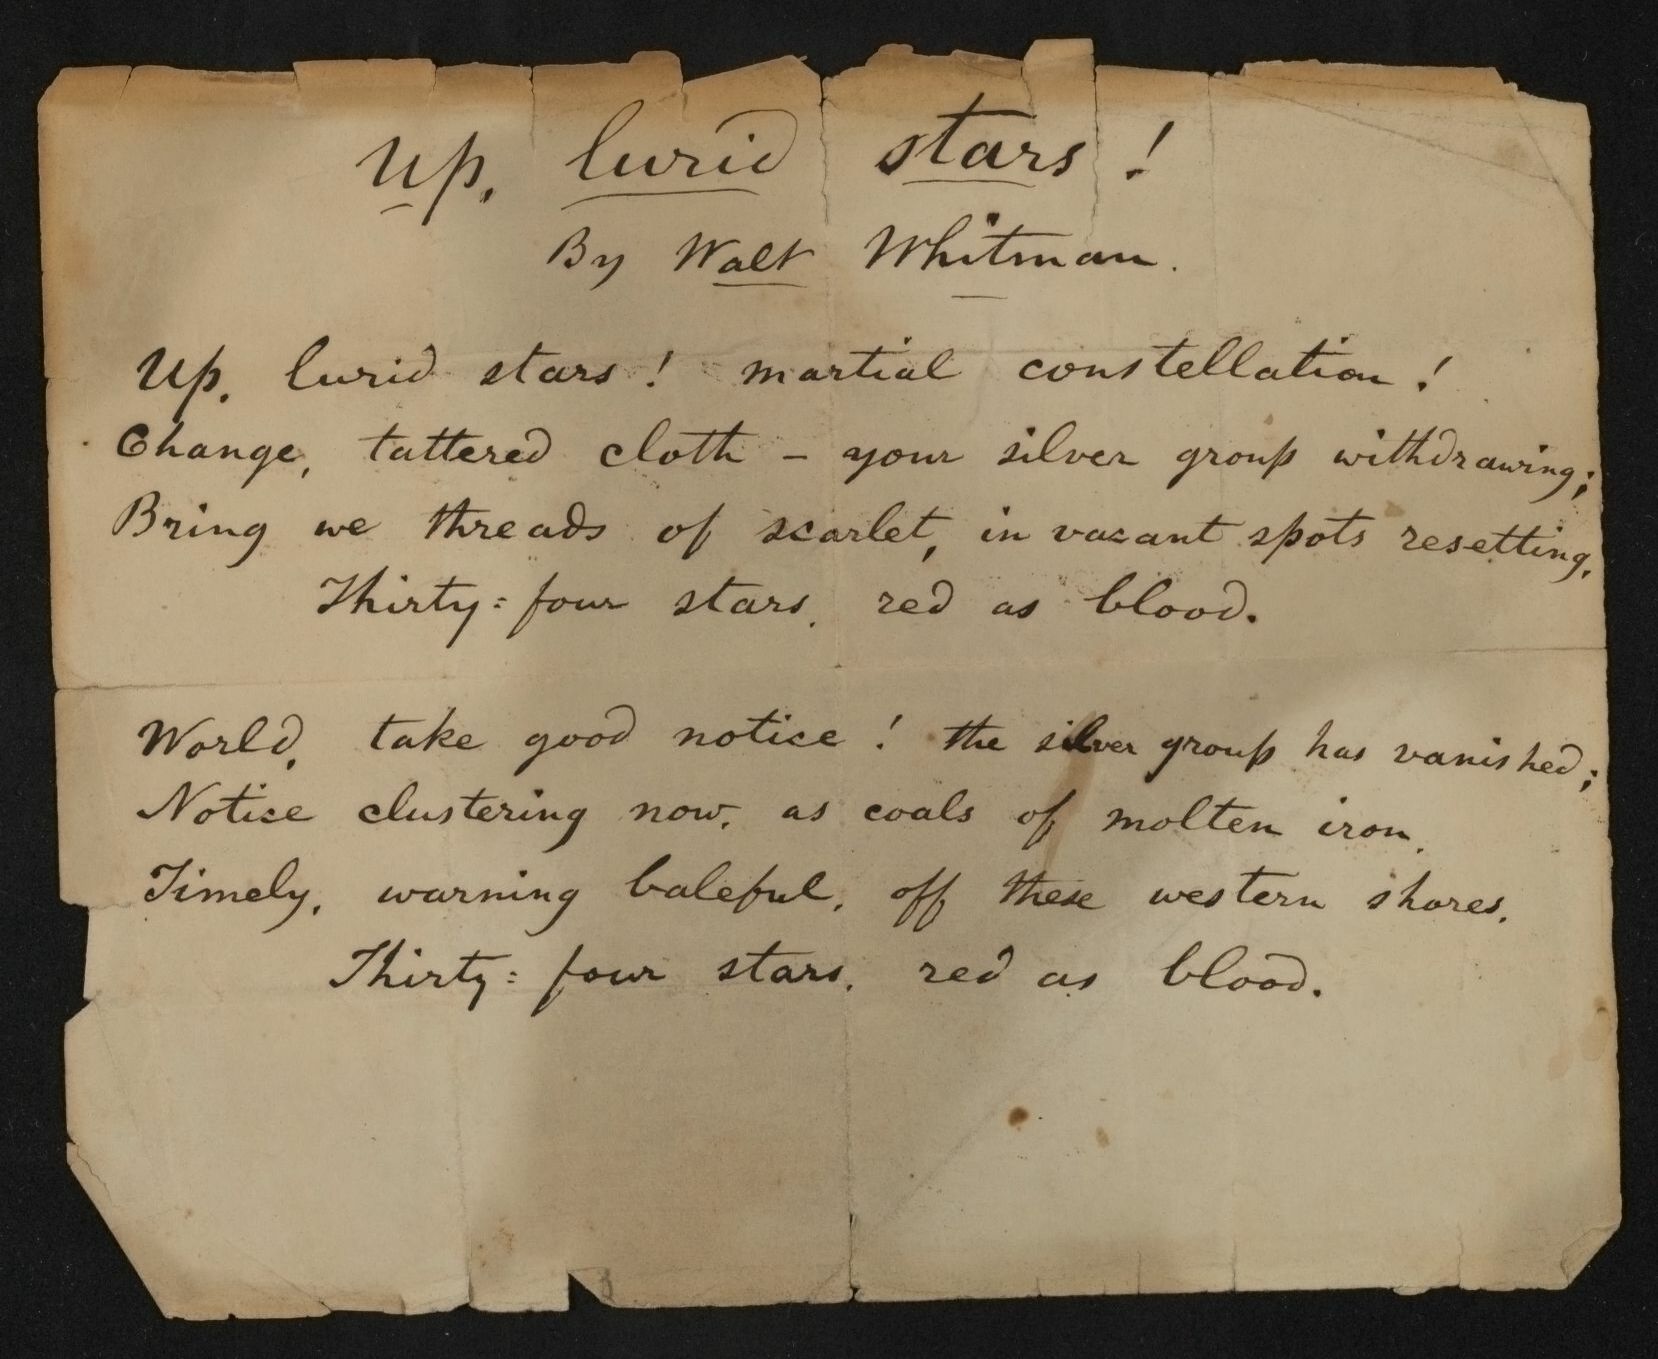 Up, lurid stars!
By Walt Whitman.
Up, lurid stars! martial constellation!
Change, tattered cloth – your silver group withdrawing;
Bring we threads of scarlet, in vacant spots resetting,
Thirty=four stars, red as blood.
World, take good notice! the silver group has vanished;
Notice clustering now, as coals of molten iron,
Timely, warning baleful, off these western shores,
Thirty=four stars, red as blood.